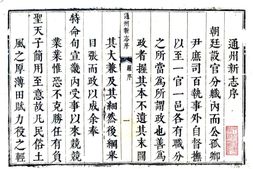 通州新志序
朝廷設官分職内而公孤卿
尹庶司百執事外自督撫
以至一官一邑各有職分
之所當為所謂政也善為
政者握其本不遺其末
通州新志序
序
一
其大兼及其細然後綱舉
目張而政以成余奉
特命旬宣畿内受事以來兢兢
業業惟恐不克勝任有負
聖天子簡用至意故凡民俗土
風之厚薄田賦力役之輕